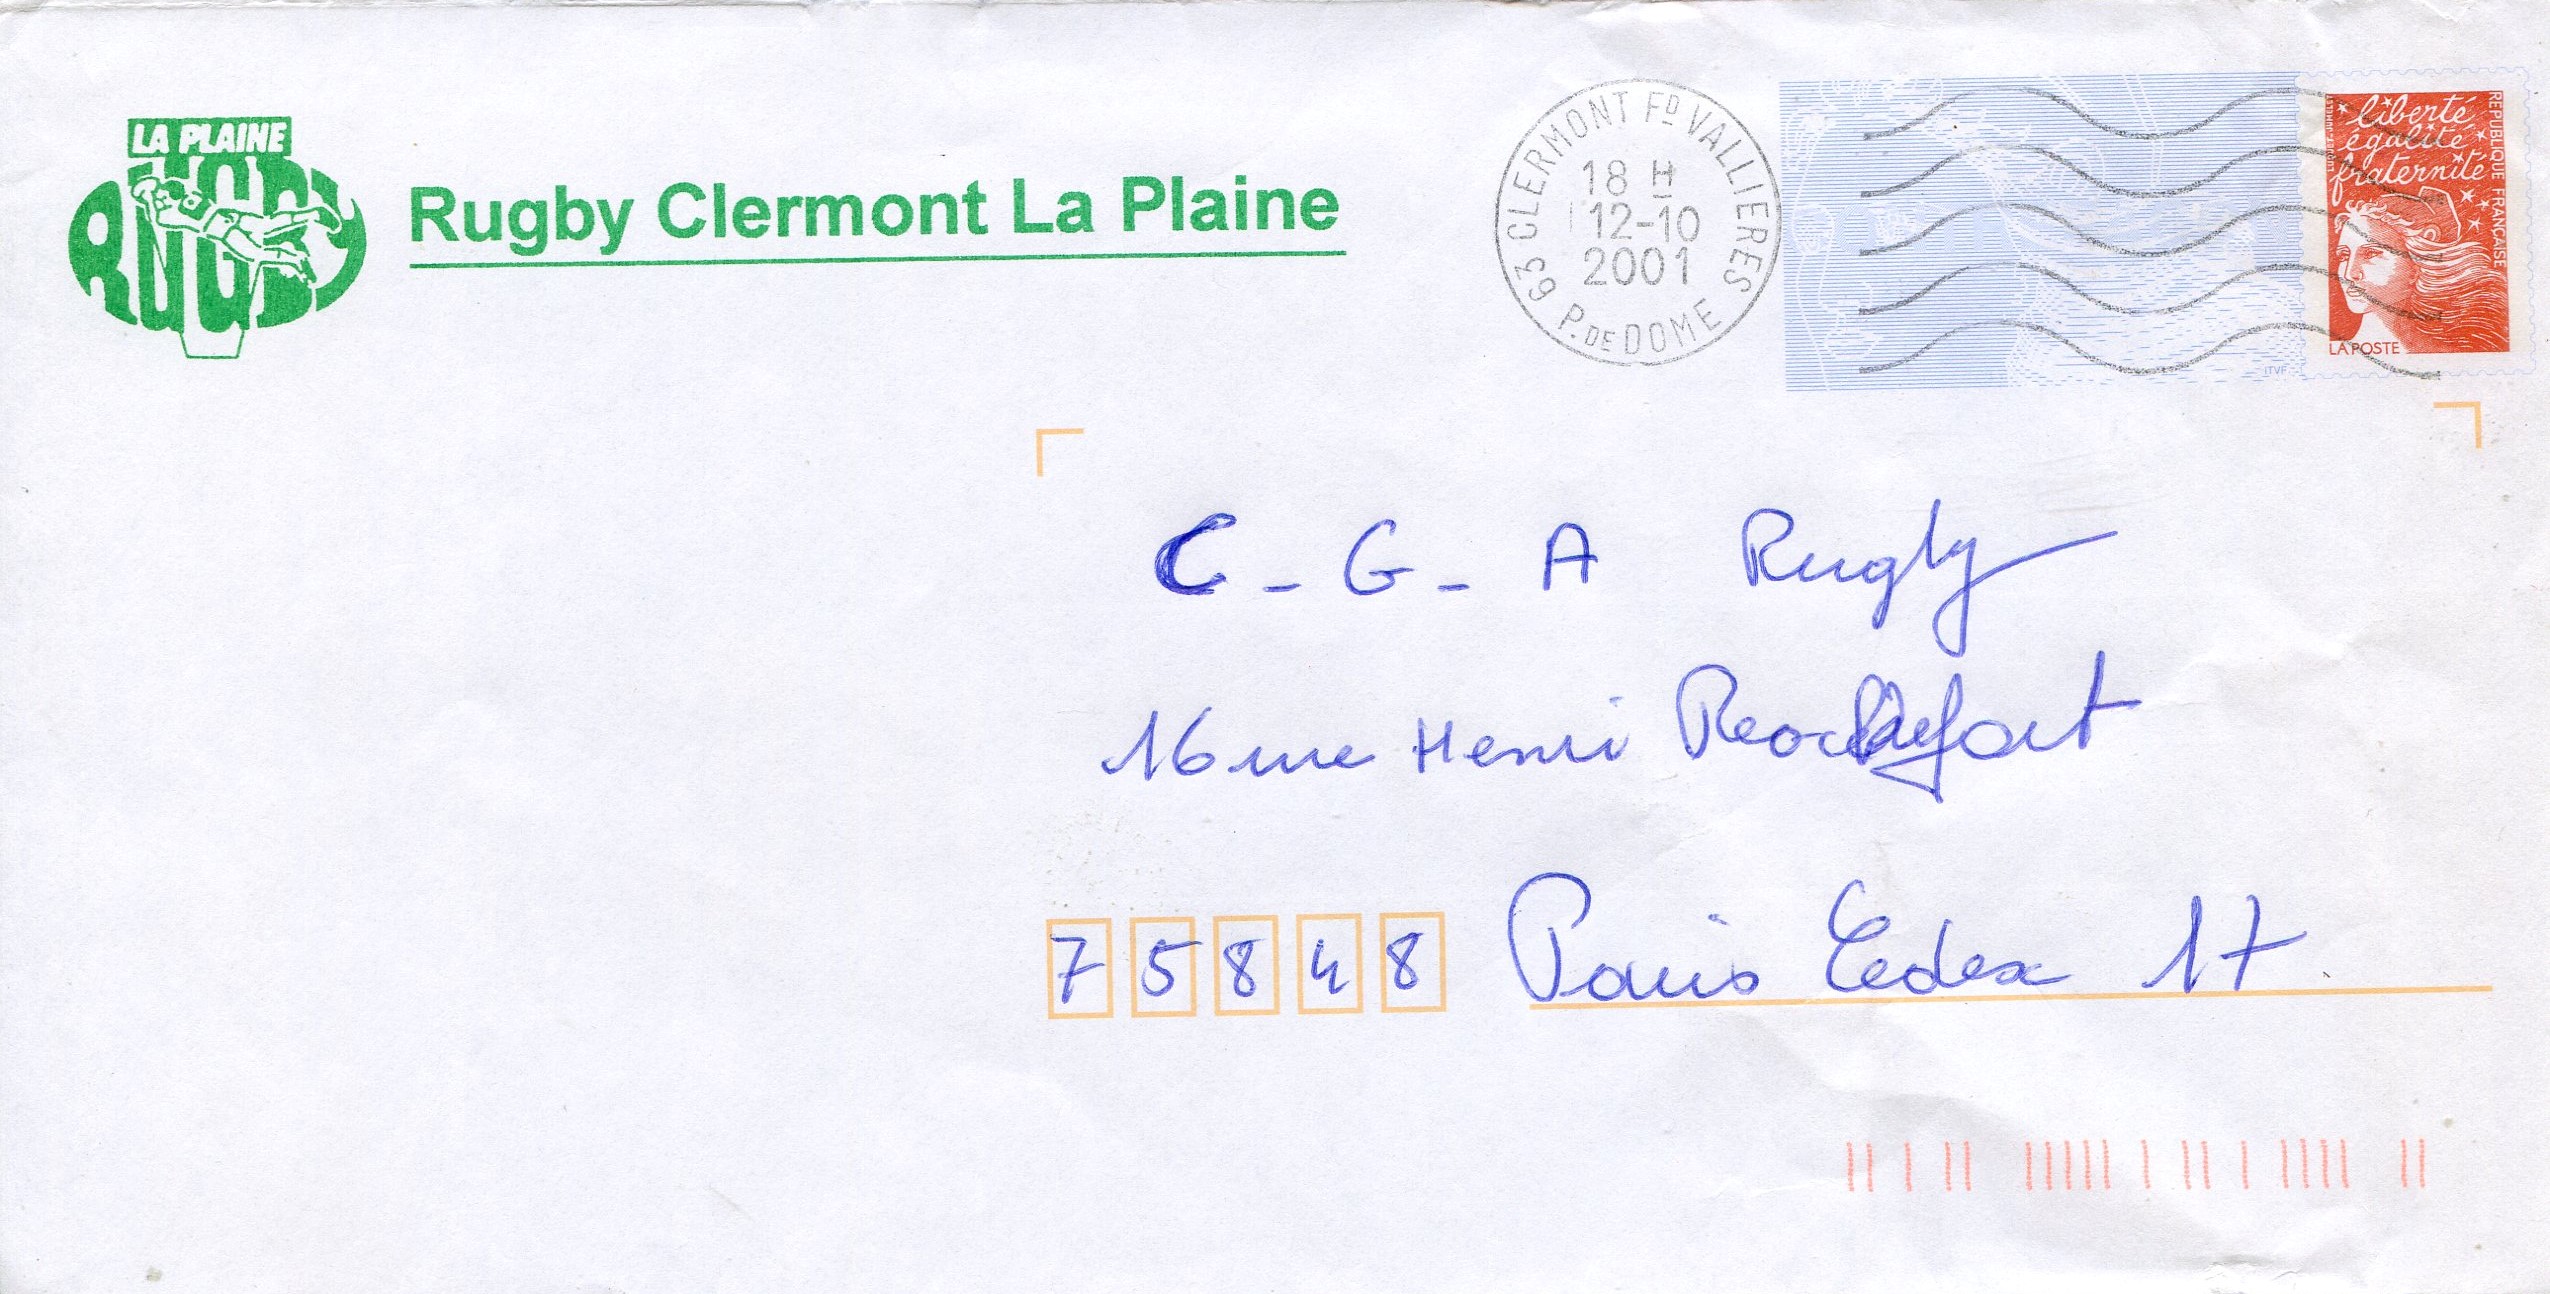 LA PLAINE
RUGBY
Rugby Clermont La Plaine
63 CLERMONT FD VALLIERES
18 H
12-10
2001
P. DE DOME
liberté
égalité
fraternité
REPUBLIQUE FRANÇAISE
LA POSTE
ITVF
C - G - A Rugby
16 rue Henri Rochefort
75848 Paris Cedex 17